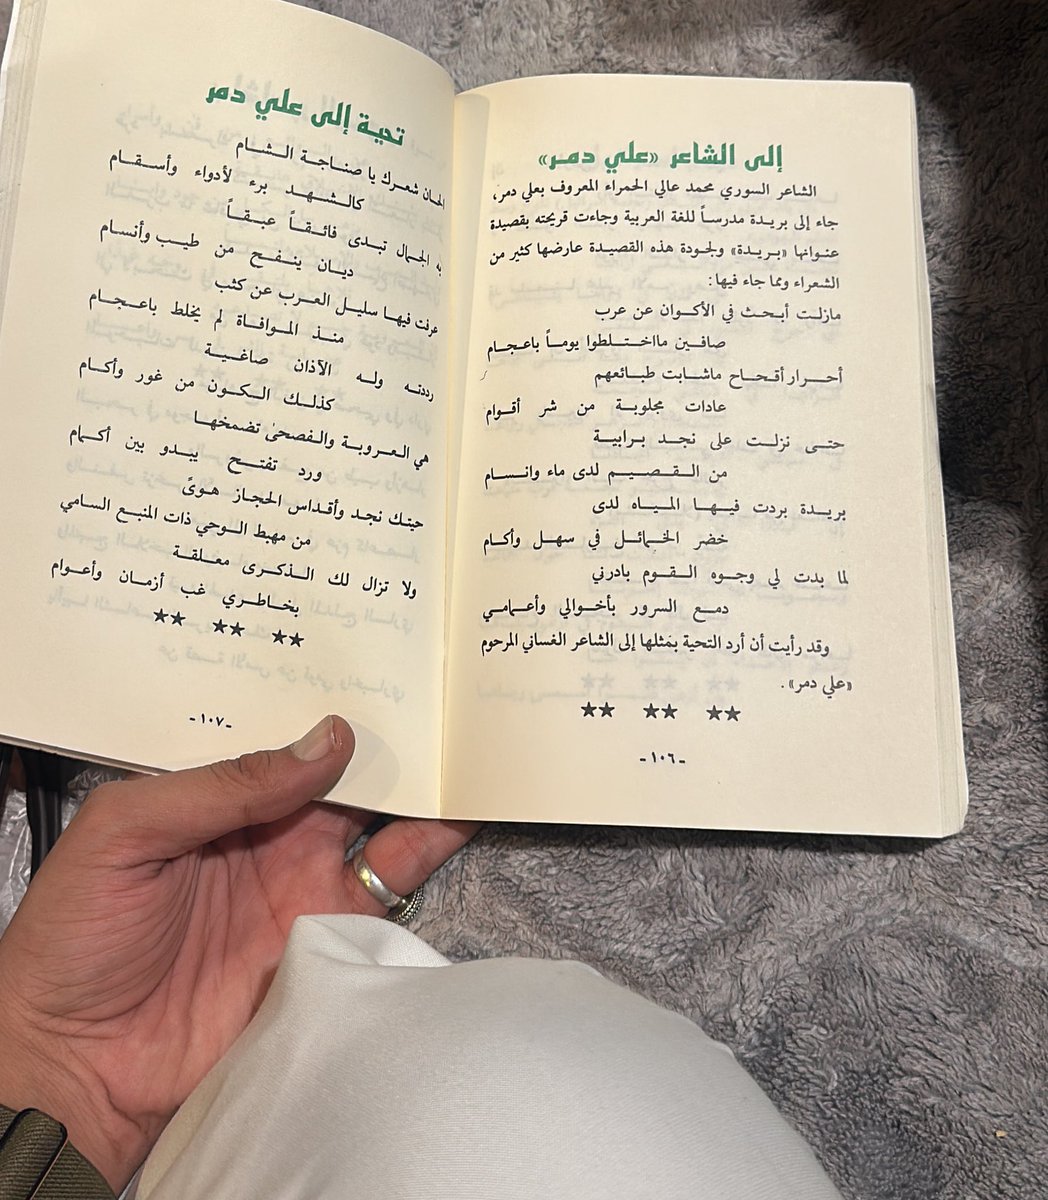 إلى الشاعر «علي دمر»
الشاعر السوري محمد عالي الحمراء المعروف بعلي دمر،
جاء إلى بريدة مدرساً للغة العربية وجاءت قريحته بقصيدة
عنوانها «بريدة» ولجودة هذه القصيدة عارضها كثير من
الشعراء ومما جاء فيها:
مازلت أبحث في الأكوان عن عرب
صافين مااختلطوا يوماً باعجام
أحرار أقحاح ماشابت طبائعهم
عادات مجلوبة من شر أقوام
حتى نزلت على نجد برابية
من القصيم لدى ماء وانسام
بريدة بردت فيها المياه لدى
خضر الخمائل في سهل وأكام
لما بدت لي وجوه القوم بادرني
دمع السرور بأخوالي وأعمامي
وقد رأيت أن أرد التحية بمثلها إلى الشاعر الغساني المرحوم
«علي دمر».
★★ ★★ ★★
-١٠٦-
تحية إلى علي دمر
الحان شعرك يا صناجة الشام
كالشهد برء لأدواء وأسقام
به الجمال تبدى فائقاً عبقاً
ديان ينفح من طيب وأنسام
عرفت فيها سليل العرب عن كثب
منذ الموافاة لم يخلط باعجام
رددته وله الآذان صاغية
كذلك الكون من غور وأكام
هي العروبة والفصحى تضمخها
ورد تفتح يبدو بين أكمام
حيتك نجد وأقداس الحجاز هوىً
من مهبط الوحي ذات المنبع السامي
ولا تزال لك الذكرى معلقة
بخاطري غب أزمان وأعوام
★★ ★★ ★★
-١٠٧-